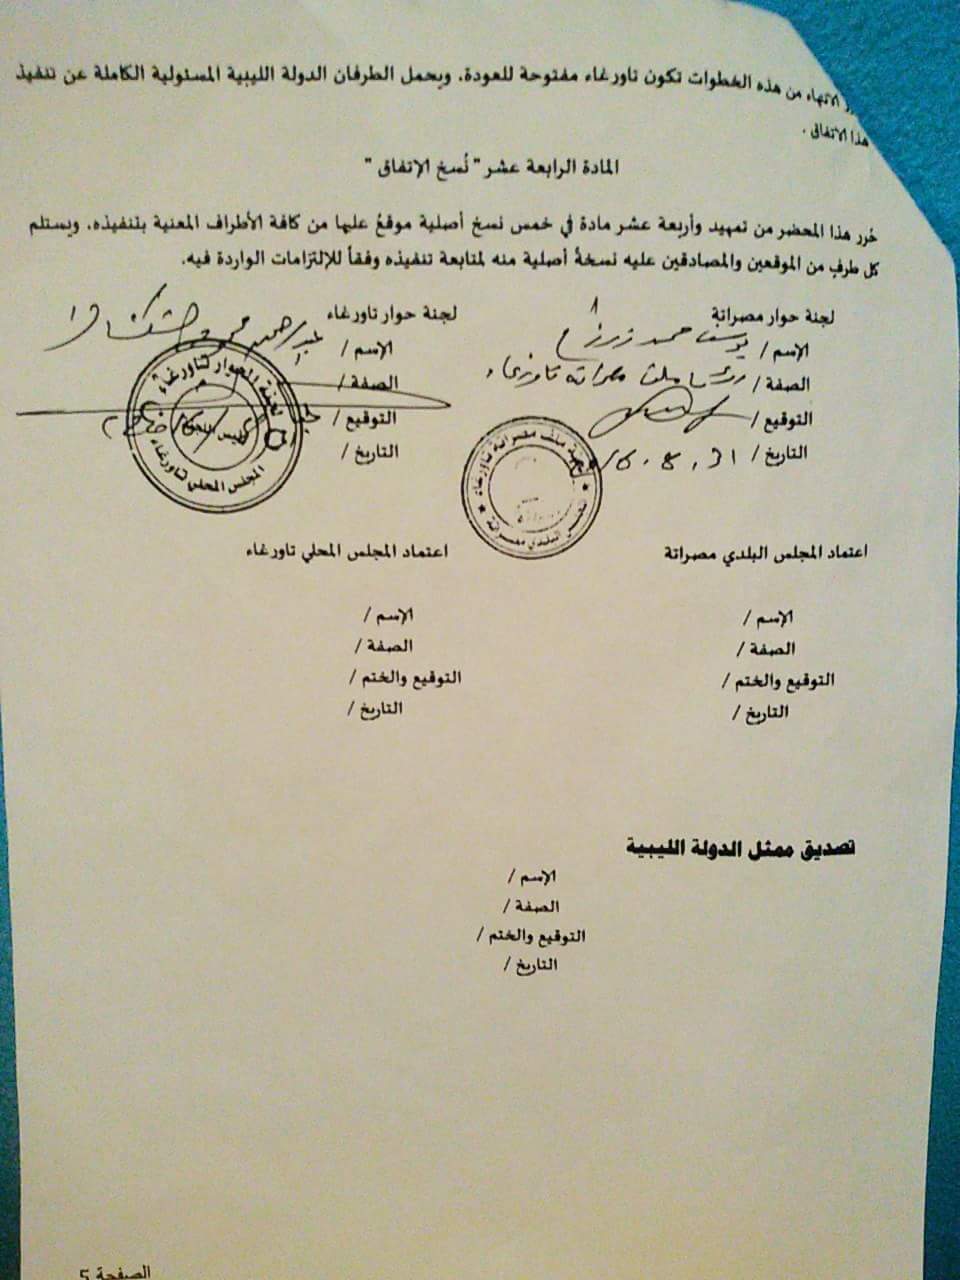 الانتهاء من هذه الخطوات تكون تاورغاء مفتوحة للعودة. ويحمل الطرفان الدولة الليبية المسئولية الكاملة عن تنفيذ
هذا الاتفاق .
المادة الرابعة عشر " نُسخ الإتفاق "
حُرر هذا المحضر من تمهيد وأربعة عشر مادة في خمس نسخ أصلية موقعُ عليها من كافة الأطراف المعنية بتنفيذه. ويستلم
كل طرفٍ من الموقعين والمصادقين عليه نسخةُ أصلية منه لمتابعة تنفيذه وفقاً للإلتزامات الواردة فيه.
لجنة حوار مصراتة
الإسم / يوسف محمد
الصفة /
التوقيع /
التاريخ / 31 . 8 . 16
لجنة حوار تاورغاء
الإسم / عبدالرحمن
الصفة /
التوقيع /
التاريخ /
لجنة الحوار لتاورغاء
المجلس المحلي تاورغاء
لجنة ملف مصراتة تاورغاء
المجلس البلدي مصراتة
اعتماد المجلس البلدي مصراتة
الإسم /
الصفة /
التوقيع والختم /
التاريخ /
اعتماد المجلس المحلي تاورغاء
الإسم /
الصفة /
التوقيع والختم /
التاريخ /
تصديق ممثل الدولة الليبية
الإسم /
الصفة /
التوقيع والختم /
التاريخ /
الصفحة 5